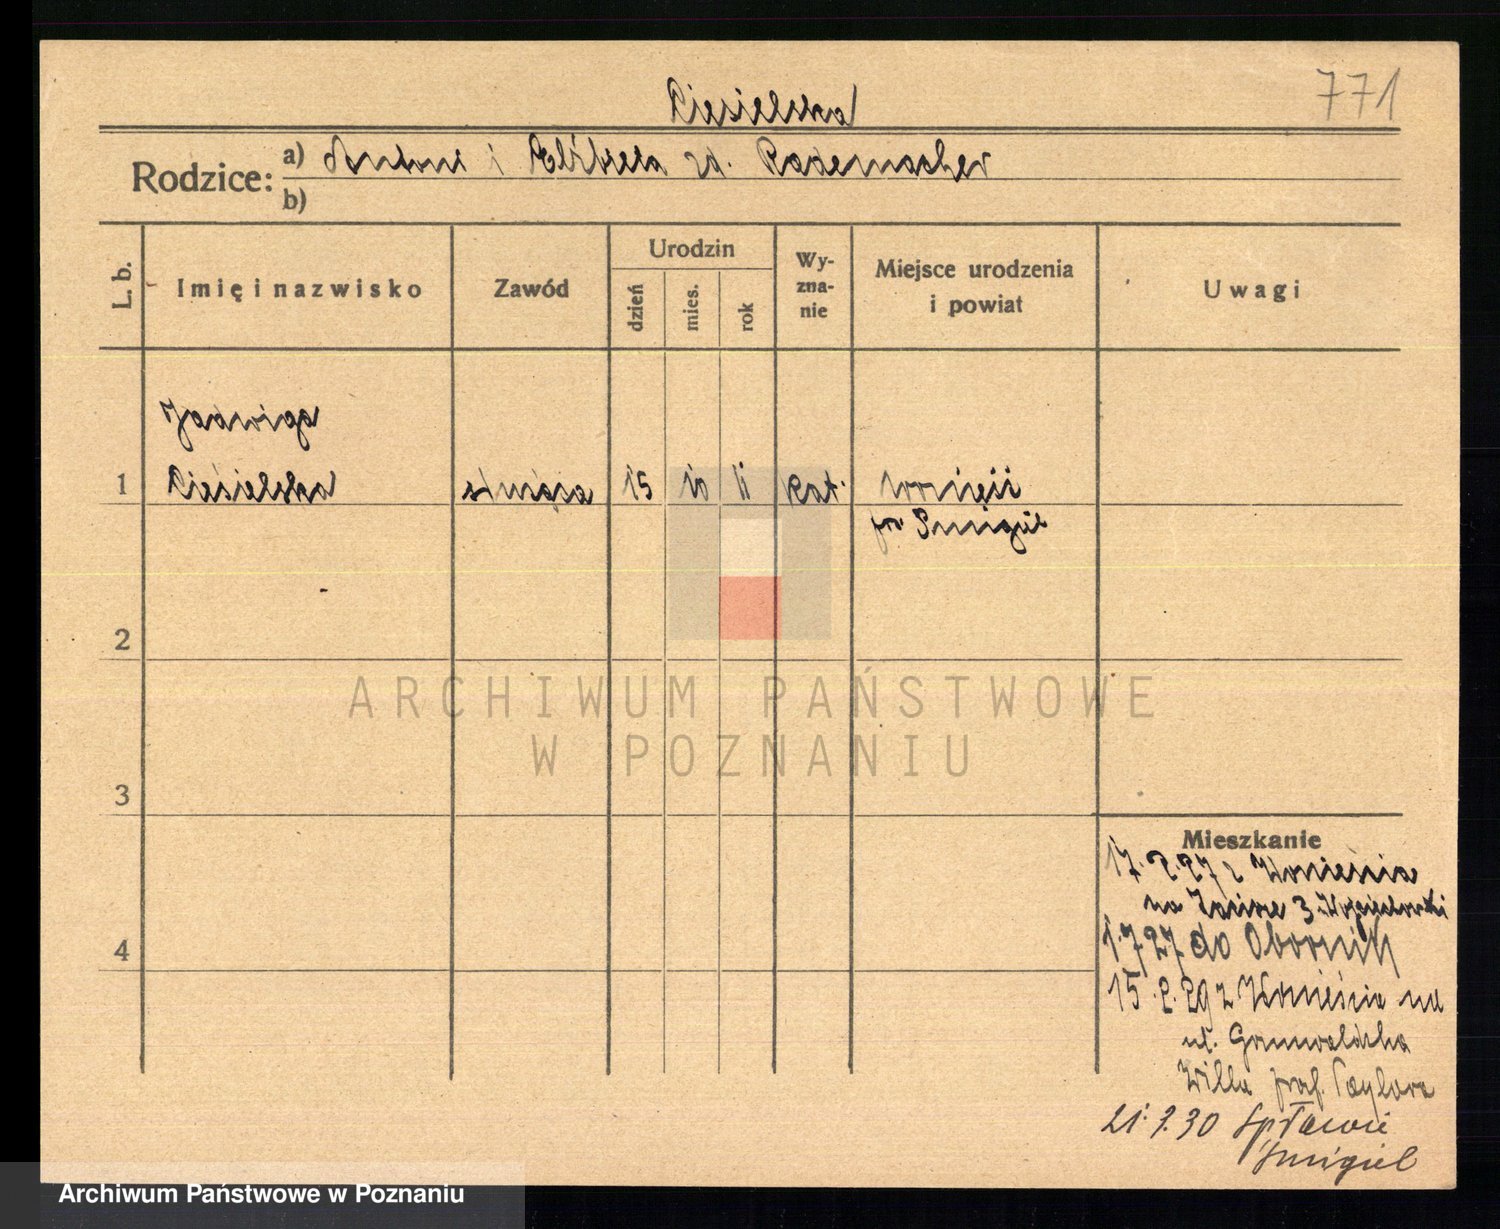 Ciesielska
771
Rodzice: a) Antoni i Elżbieta zd. Rademacher
b)
L. b. Imię i nazwisko Zawód Urodzin dzień mies. rok Wyznanie Miejsce urodzenia i powiat Uwagi
Jadwiga
1 Ciesielska służąca 15 10 11 kat.
pow. Śmigiel
2
3
4
ARCHIWUM PAŃSTWOWE
W POZNANIU
Mieszkanie
17. 2. 27 z Wonieścia
na 3 Wojciechowski
1.7 27 do Obornik
15. 2. 29 z Wonieścia na
ul. Grunwaldzka
Willa prof. Taylora
21. 3. 30 Spławie
Śmigiel
Archiwum Państwowe w Poznaniu